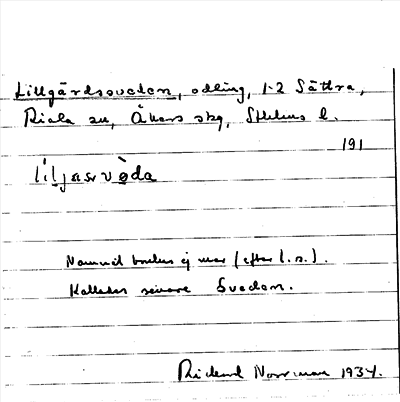 Lillgårdssvedan, odling, 1-2 Sättra,
Riala sn, Åkers skg, Sthlms l.
191
Namnet brukas ej mer (efter l.s.).
Kallades senare Svedan.
Rickard Norrman 1934.